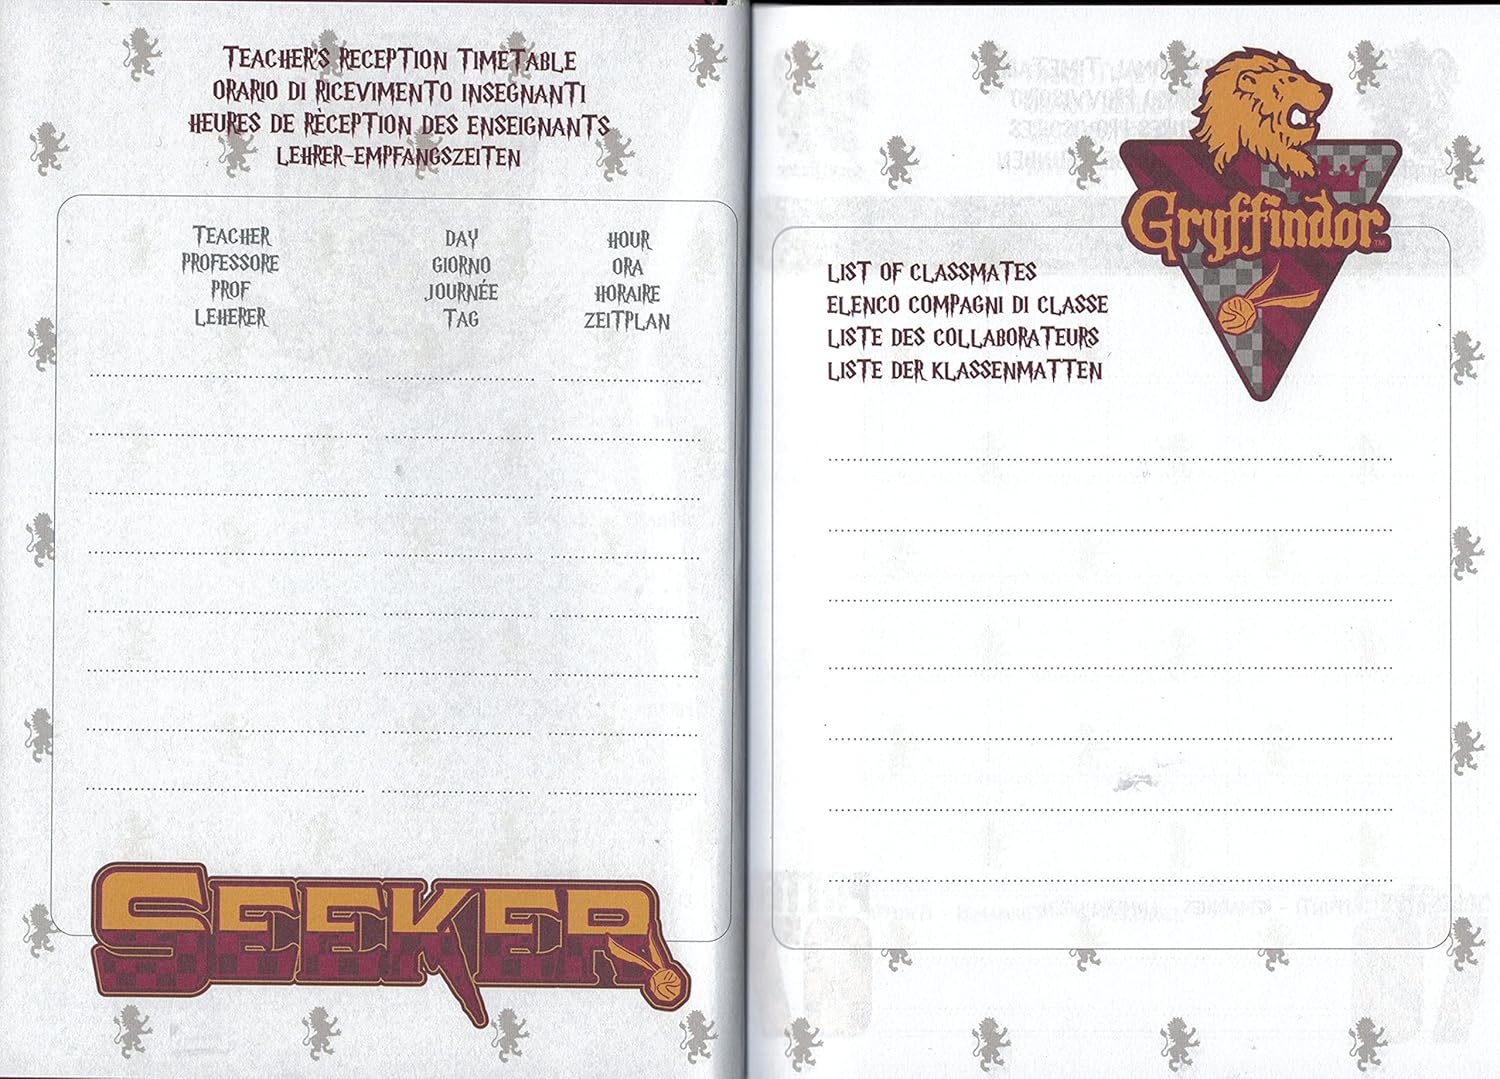 TEACHER'S RECEPTION TIMETABLE
ORARIO DI RICEVIMENTO INSEGNANTI
HEURES DE RÈCEPTION DES ENSEIGNANTS
LEHRER-EMPFANGSZEITEN
TEACHER
PROFESSORE
PROF
LEHERER
DAY
GIORNO
JOURNÉE
TAG
HOUR
ORA
HORAIRE
ZEITPLAN
SEEKER
Gryffindor™
LIST OF CLASSMATES
ELENCO COMPAGNI DI CLASSE
LISTE DES COLLABORATEURS
LISTE DER KLASSENMATTEN